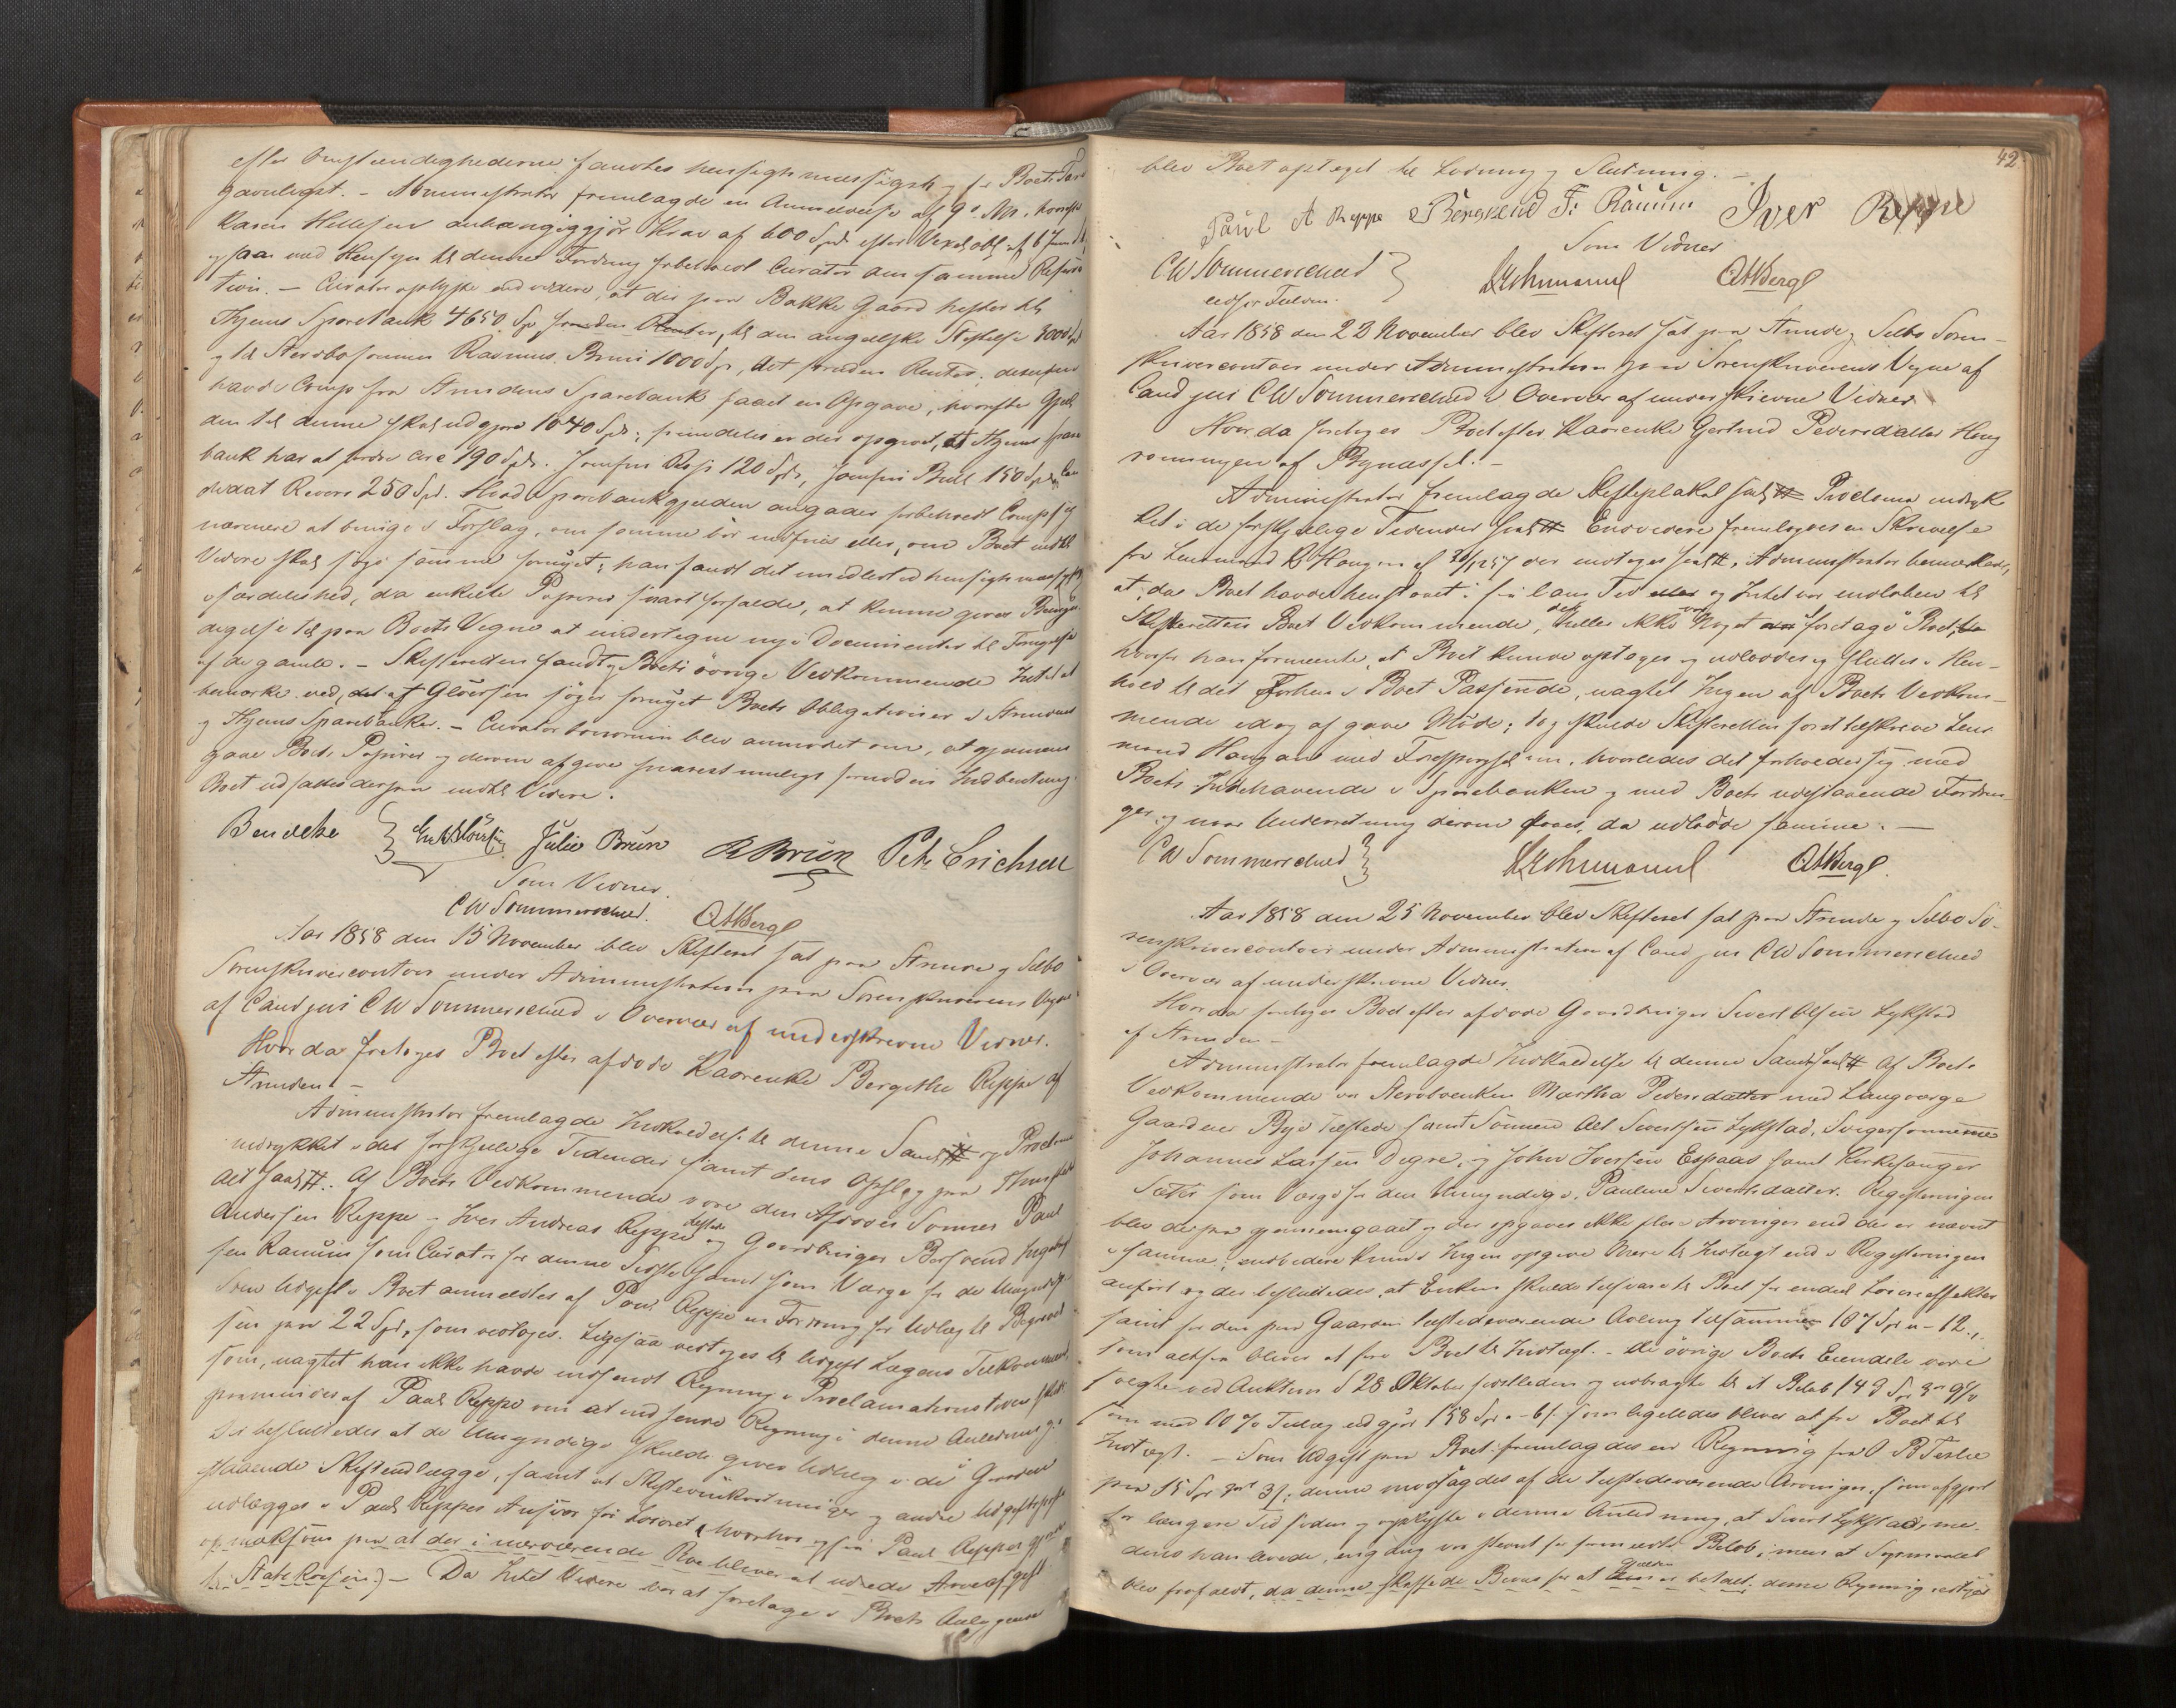 efter Omstændighederne fandtes hensigtsmæssigst og for Boets Tarv
gavnligst. - Administrator fremlagde en Anmeldelse af 9de Ms. hvorefter
Karen Hellesen anhængiggjør Krav af 600 Spd efter Vexelobl. af 6 Juni
og saa med Hensyn til denne Fordring forbeholdt Curator sin samme
- Curator oplyste endvidere, at der paa Bakke Gaard hefter til
Thjems Sparebank 4650 Sp foruden Renter, til den angelske Stiftelse 3000 Sp
og til Stervbosønnen Rasmus Bruun 1000 Sp, Alt foruden Renter; desuden
havde Comp fra Strindens Sparebank faaet en Opgave, hvorefter Gjæl-
den til denne skal udgjøre 1040 Spd; fremdeles er der opgivet, at Thjems Spare
bank har at fordre circa 190 Spd. Jomfru 120 Spd, Jomfru Bull 150 Spd, Can
didat 250 Spd. Hvad Sparebankgjælden angaaer forbeholdt Comp sig
nærmere at bringe i Forslag, om samme bør indfries eller, om Boet indtil
Videre skal søge samme fornyet; han fandt det imidlertid hensigtsmæssigt
i særdeleshed, da enkelte Papirer snart forfalde, at kunne gives Bemyn-
digelse til paa Boets Vegne at undertegne nye Documenter til Fornyelse
af de gamle. - Skifteretten fandt og Boets øvrige Vedkommende Intet at
bemærke ved, at Gløersen søger fornyet Boets Obligationer i Strindens
og Thjems Sparebanker. - Curator bonorum blev anmodet om, at gjennem
gaae Boets Papirer og derom afgive snarest muligt fornøden Indberetning.
Boet udsattes derpaa indtil Videre.
Benecke Julie Bruun R Bruun Pet. Erichsen
Som Vidner
CW Sommerschield. OAWBergh
Aar 1858 den 15 November blev Skifteret sat paa Strinde og Selbo
Sorenskrivercontoir under Administration paa Sorenskriverens Vegne
af Cand juris CW Sommerschield i Overvær af underskrevne Vidner.
Hvor da foretoges Boet efter afdøde Kaarenke Bergithe Reppe af
Strinden. -
Administrator fremlagde Indkaldelse til denne Samling og Proclama
indrykket i det forskjellige Tidender samt dens Opslag paa Thinget
Alt saal. #. Af Boets Vedkommende vare den Afdødes Sønner Paul
Andersen Reppe - Iver Andreas Reppe tilstede og Gaardbruger Bersvend Ingebrigt
sen Ranum som Curator for denne Sidste samt som Værge for de Umyndige
Som Udgift i Boet anmeldtes af Paul Reppe en Fordring for Udlæg til Begravel
sen paa 22 Spd, som vedtoges. Ligesaa vedtoges til Udgift Lægens Tilkommende,
som, uagtet han ikke havde indsendt Regning i Proclamationstiden skulde
paamindes af Paul Reppe om at indsende Regning i denne Anledning.
Det besluttedes at de Umyndige skulde gives Udlæg i de i Gaarden
staaende Skifteudlægge, samt at Skifteomkostninger og andre Udgiftsposter
udlægges i Paul Reppes Ansvar for Løsøret, hvorhos ogsaa Paul Reppe gjordes
opmærksom paa at der i nærværende Boe bliver at udrede Arveafgift
til Statskassen.) - Da Intet Videre var at foretage i Boets Anliggende
42.
blev Boet optaget til Lodning og Slutning. -
Paul A Reppe Bersvend I: Ranum Iver Reppe
Som Vidner
CW Sommerschield OAWBergh
Aar 1858 den 22 November blev Skifteret sat paa Strinde og Selbo Soren-
skrivercontoir under Administration paa Sorenskriverens Vegne af
Cand juris CW Sommerschield i Overvær af underskrevne Vidner
Hvor da foretoges Boet efter Kaarenke Gertrud Pedersdatter Haug
romningen af Bynæsset. -
Administrator fremlagde Skifteplakat saal. # Proclama indryk
ket i de forskjellige Tidender saal. # Endvidere fremlagdes en Skrivelse
fra Lensmand Haugan af 30/12 57 der modtages saal. #. Administrator bemærkede,
at, da Boet havde henstaaet i saa lang Tid og Intet var indløbet til
Skifteretten Boet Vedkommende, der heller ikke var Noget at foretage i Boet,
hvorfor han formeente, at Boet kunde optages og udloddes og sluttes i Hen-
hold til det Forhen i Boet Passerede, uagtet Ingen af Boets Vedkom-
mende idag af gave Møde; dog skulde Skifteretten først tilskrive Lens
mand Haugan med Forespørgsel om, hvorledes det forholder sig med
Boets Indehavende i Sparebanken og med Boets udestaaende Fordrin-
ger, og naar Underretning derom faaes, da udlodde samme. -
CW Sommerschield OAWBergh.
Aar 1858 den 25 November blev Skifteret sat paa Strinde og Selbo So-
renskrivercontoir under Administration af Cand jur CW Sommerschield
i Overvær af underskrevne Vidner.
Hvor da foretoges Boet efter afdøde Gaardbruger Sivert Olsen Lykstad
af Strinden -
Administrator fremlagde Indkaldelse til denne Samling saal. # Af Boets
Vedkommende var Stervboenken Martha Pedersdatter med Laugværge
Gaardeier Bye tilstede samt Sønnen Ole Sivertsen Lykstad, Svigersønnerne
Johannes Larsen Degre, og John Iversen Espaas samt Kirkesanger
Sæter som Værge for den Umyndige, Pauline Sivertsdatter. Registreringen
blev derpaa gjennemgaaet og der opgaves ikke flere Arvinger end der er nævnt
i samme; endvidere kunde Ingen opgive Mere til Indtægt end i Registreringen
anført og der besluttedes, at Enken skulde tilsvare til Boet for endeel Løsøreeffekter
samt for den paa Gaarden tilstedeværende Avling tilsammen 107 Spd - 12 s,
som altsaa bliver at føre Boet til Indtægt. - De øvrige Boets Eiendele vare
solgte ved Auktion d 28 Oktober sidstleden og udbragte til et Beløb 143 Sp 3 ort 9 s
som med 10 % Tillæg udgjør 158 Sp - 6 s som ligeledes bliver at føre Boet til
Indtægt. - Som Udgift paa Boet fremlagdes en Regning fra O B
paa 15 Sp ort 3 s; denne modsagdes af de tilstedeværende Arvinger, som afgjort
for længere Tid siden og oplyste i denne Anledning, at Sivert Lykstad, me-
dens han levede, engang var stevnt for samme Beløb; men at Søgsmaalet
blev frafaldt, da denne skaffede Beviis for at Gjælden betalt; denne Regning vedtoges